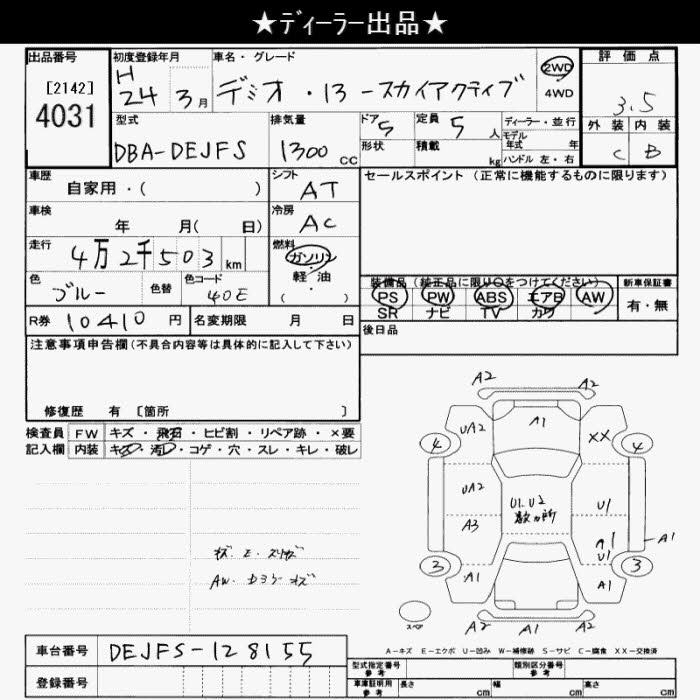 ★ディーラー出品★
出品番号
[2142]
4031
初度登録年月
H
24 3月
車名・グレード
デミオ・13-スカイアクティブ
2WD
4WD
評価点
3.5
外装 内装
C B
型式
DBA-DEJFS
排気量
1300 CC
ドア 5
形状
定員 5 人
積載 kg
ディーラー・並行
モデル年式 年
ハンドル 左・右
車歴
自家用・( )
シフト
AT
セールスポイント (正常に機能するものに限ります)
車検
年 月( 日)
冷房
AC
走行
4万2千503 km
燃料
ガソリン
・
軽・油
( )
色
ブルー
色替
色コード
40E
装備品 (純正品に限り○をつけてください)
PS PW ABS エアB AW
SR ナビ TV カワ
新車保証書
有・無
R券 10410 円
名変期限 月 日
後日品
注意事項申告欄(不具合内容等は具体的に記入して下さい)
修復歴 有 [箇所 ]
検査員
記入欄
FW キズ・飛石・ヒビ割・リペア跡・×要
内装 キズ・汚レ・コゲ・穴・スレ・キレ・破レ
AW.
A2 A2
A1
UA2 XX
4 4
UA2 U1
U1.U2
数ヵ所
A3 A1
U1
A1
3 3
A1 A1
スペア
A2 A1 A2
A-キズ E-エクボ U-凹み W-補修跡 S-サビ C-腐食 XX-交換済
車台番号 DEJFS-128155
登録番号
型式指定番号
参考
類別区分番号
参考
車庫証明用
参考
長さ cm
幅 cm
高さ cm